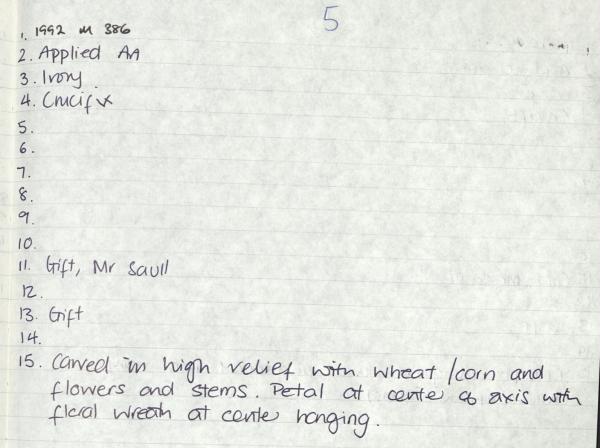 5
1. 1992 M 386
2. Applied AA
3. Ivory.
4. Crucifix
5.
6.
7.
8.
9.
10.
11. Gift, Mr Saull
12.
13. Gift
14.
15. Carved in high relief with wheat/corn and
flowers and stems. Petal at cente of axis with
floral wreath at cente hanging.